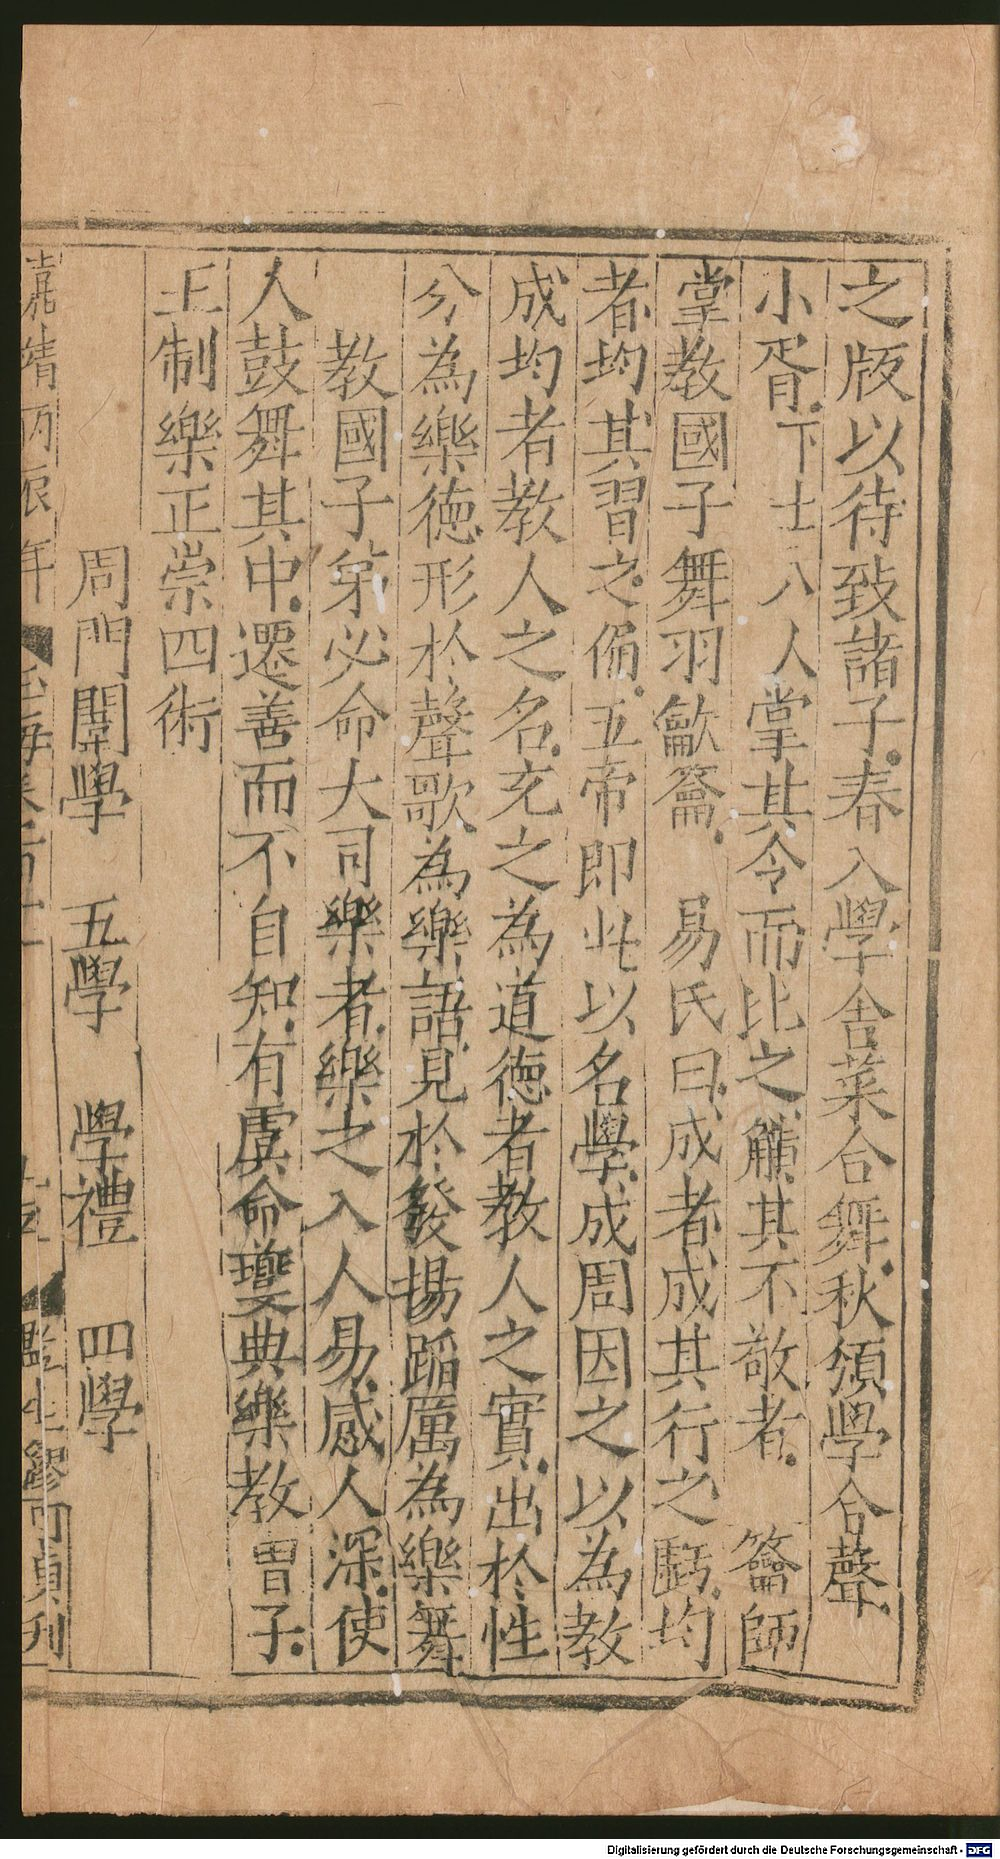 之版以待致諸子春入學舍菜合舞秋頒學合聲
小胥下士八人掌其令而比之觵其不敬者　籥師
掌教國子舞羽龡籥　易氏曰成者成其行之虧均
者均其習之偏五帝即此以名學成周因之以為教
成均者教人之名充之為道德者教人之實出於性
分為樂德形於聲歌為樂語見於發揚蹈厲為樂舞
教國子弟必命大司樂者樂之入人易感人深使
人鼓舞其中遷善而不自知有虞命夔典樂教冑子
王制樂正崇四術
周門闈學　五學　學禮　四學
嘉靖丙辰年
玉海
監生繆可貞刊
Digitalisierung gefördert durch die Deutsche Forschungsgemeinschaft - DFG